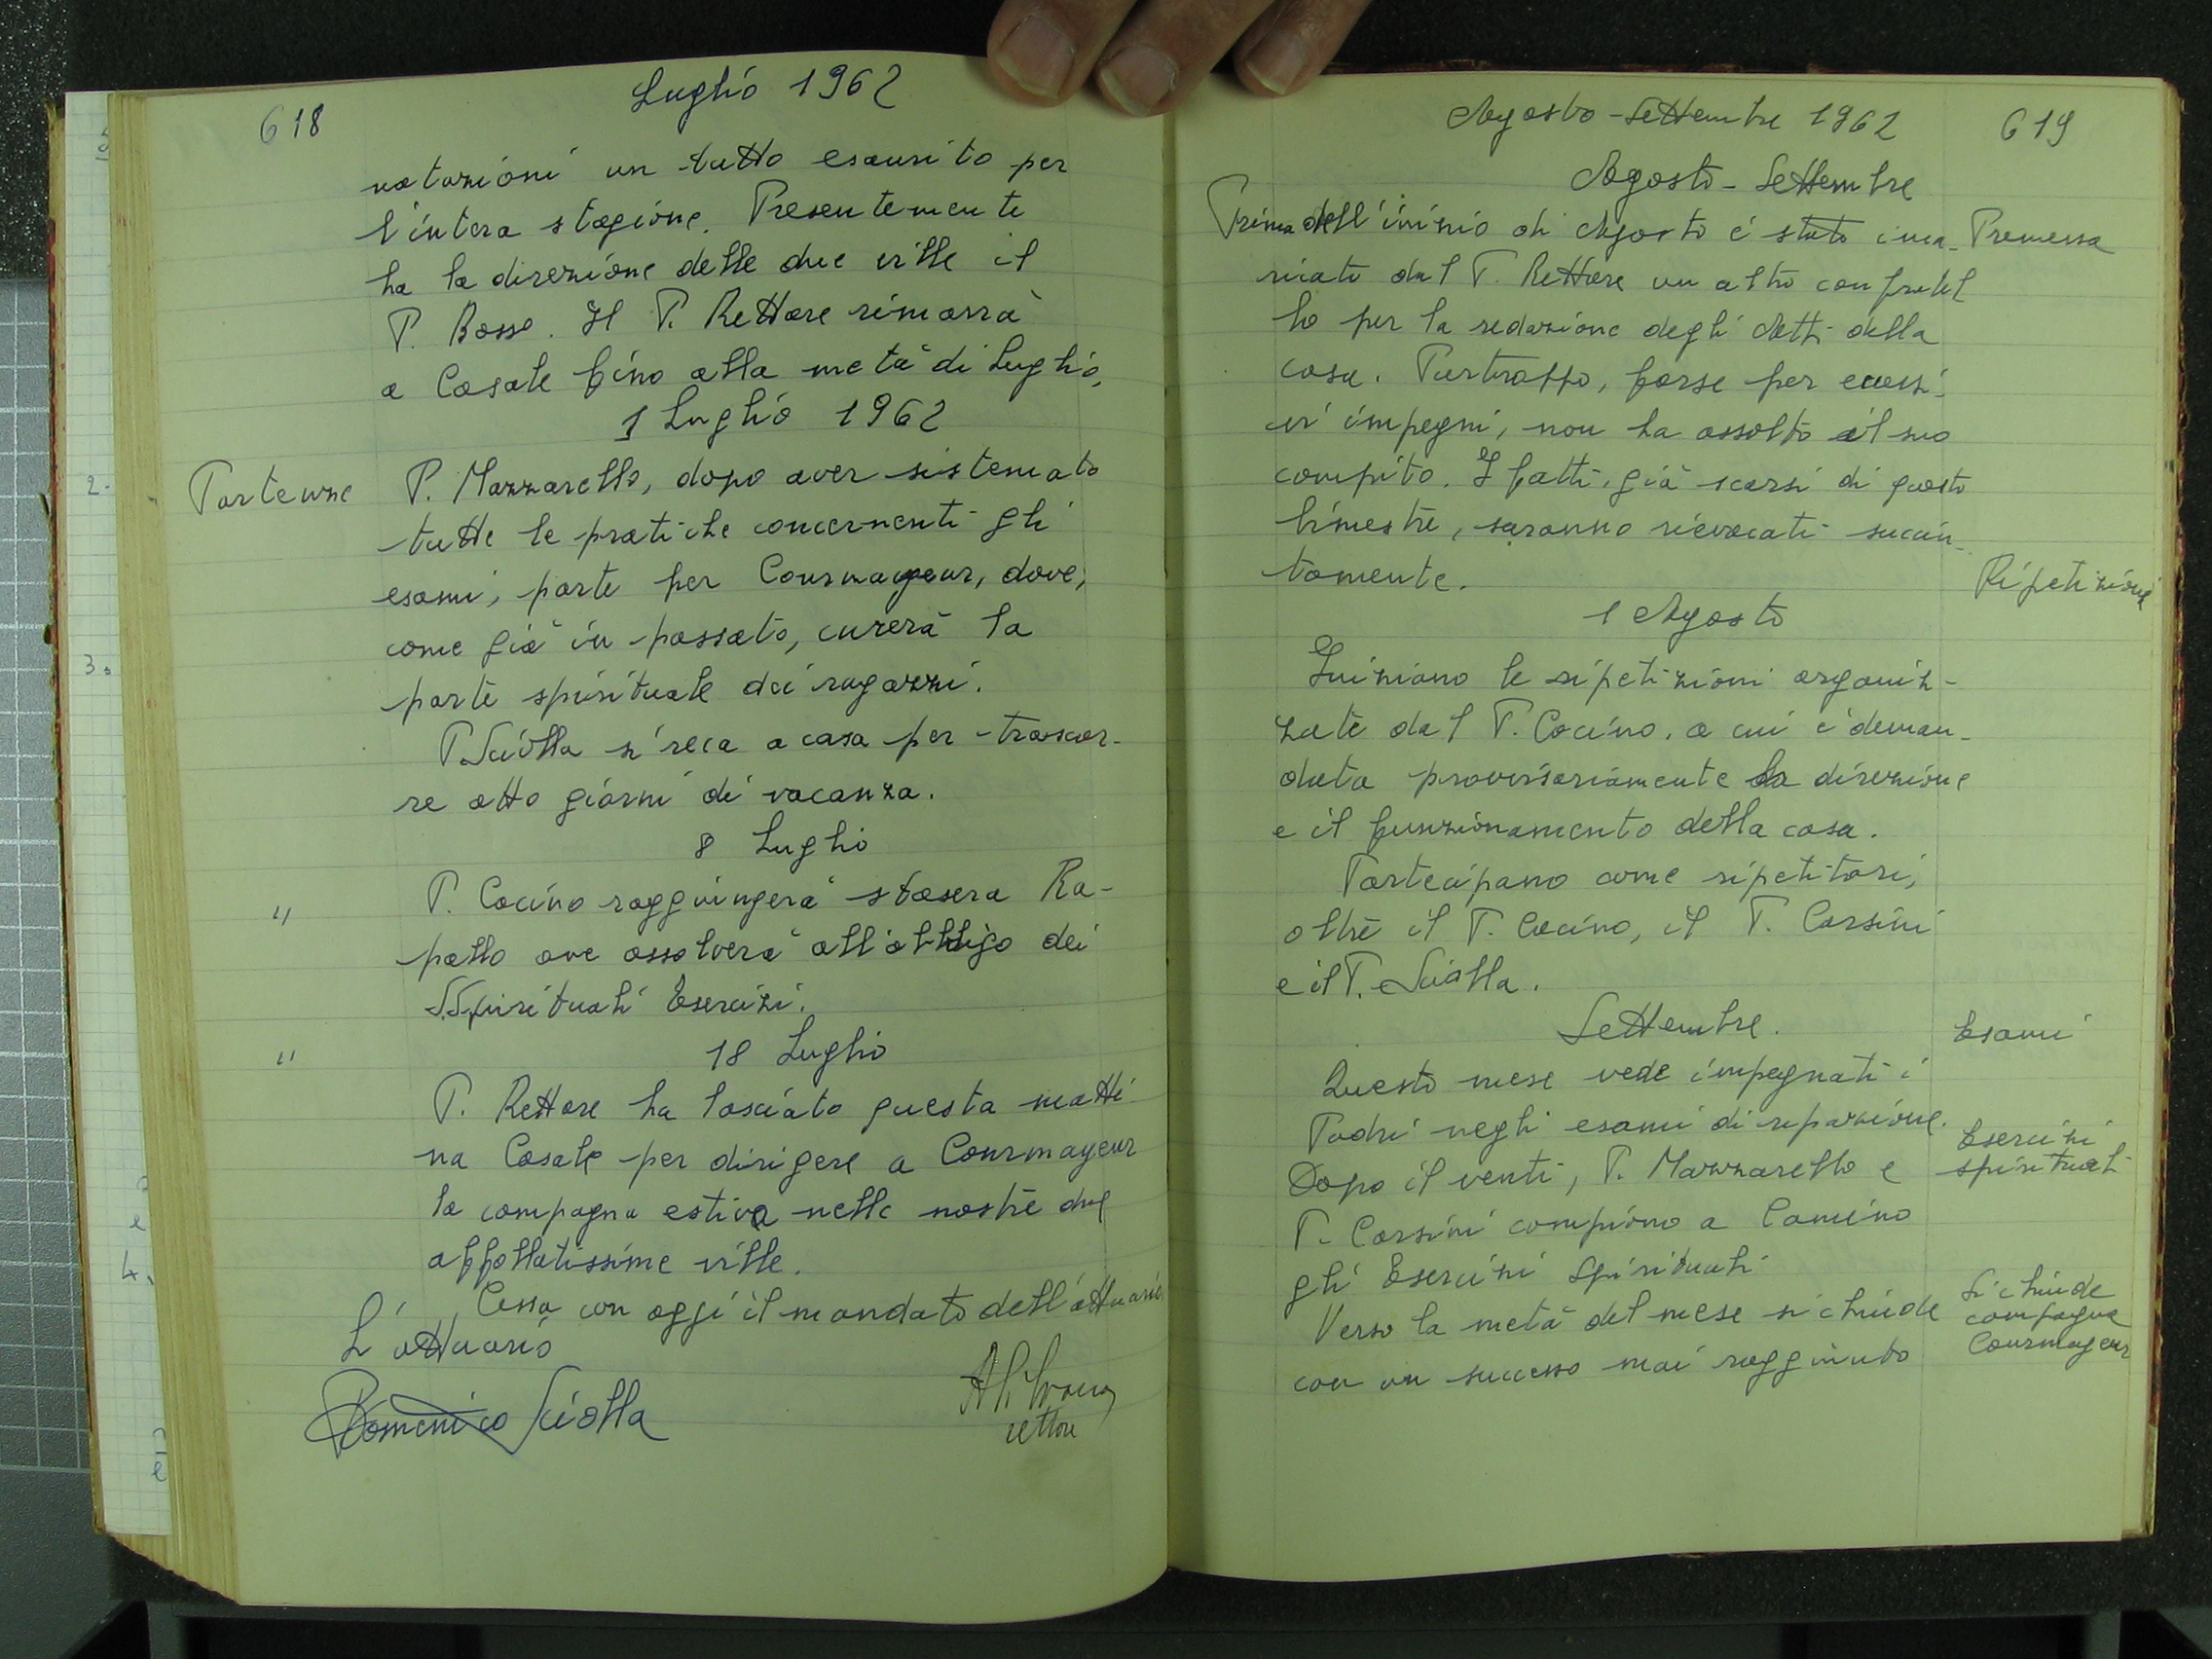 618
Luglio 1962
notazioni un tutto esaurito per
l'intera stagione. Presentemente
ha la direzione delle due ville il
P. Bosso. Il P. Rettore rimarrà
a Casale fino alla metà di Luglio.
1 Luglio 1962
Partenze
P. Mazzarello, dopo aver sistemato
tutte le pratiche concernenti gli
esami, parte per Courmayeur, dove,
come già in passato, curerà la
parte spirituale dei ragazzi.
P. Sciolla si reca a casa per trascor-
re otto giorni di vacanza.
8 Luglio
"
P. Cocino raggiungerà stasera Ra-
pallo ove assolverà all'obbligo dei
S.Spirituali Esercizi.
18 Luglio
"
P. Rettore ha lasciato questa matti-
na Casale per dirigere a Courmayeur
la campagna estiva nelle nostre due
affollatissime ville.
Cessa con oggi il mandato dell'attuario
L'attuario
Domenico Sciolla
rettore
Agosto-Settembre 1962
619
Agosto-Settembre
Prima dell'inizio di Agosto è stato inca-
Premessa
ricato dal P. Rettore un altro confratel
lo per la redazione degli Atti della
casa. Purtroppo, forse per eccessi-
vi impegni, non ha assolto il suo
compito. I fatti, già scarsi di questo
bimestre, saranno rievocati succin-
tamente.
1 Agosto
Ripetizioni
Iniziano le ripetizioni organiz-
zate dal P. Cocino, a cui è deman-
data provvisoriamente la direzione
e il funzionamento della casa.
Partecipano come ripetitori,
oltre il P. Cocino, il P. Corsini
e il P. Sciolla.
Settembre.
Esami
Questo mese vede impegnati i
Padri negli esami di riparazione.
Esercizi
spirituali
Dopo il venti, P. Mazzarello e
P. Corsini compiono a Camino
gli Esercizi Spirituali
Verso la metà del mese si chiude
Si chiude
campagna
Courmayeur
con un successo mai raggiunto